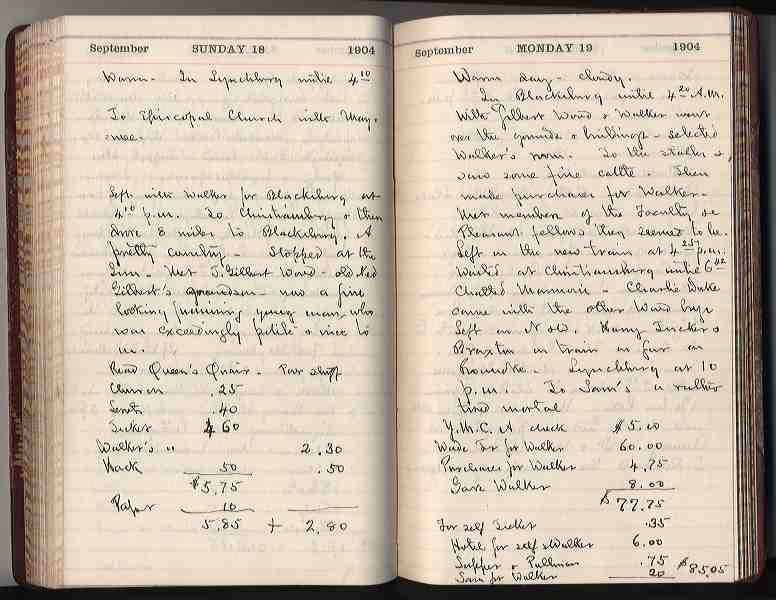 September SUNDAY 18 1904
Warm - In Lynchburg until 4 10
To Episcopal Church with May.
Left with Walker for Blacksburg at
4 10 p.m. To Christiansburg & then
drove 8 miles to Blacksburg. A
pretty country - Stopped at the
Inn - Met J. Gilbert Wood - old Ned
Gilbert's grandson - now a fine
looking young man who
was exceedingly polite & nice to
us.
Read Queen's Quair - Poor stuff
Church .25
.40
Ticket 4 60
Walker's " 2.30
Hack 50 .50
$5.75
Paper 10
5.85 + 2.80
September MONDAY 19 1904
Warm day - cloudy.
In Blacksburg until 4 20 P.M.
With Gilbert Wood & Walker went
over the grounds & buildings - selected
Walker's room. To the stables &
saw some fine cattle. Then
made purchases for Walker -
Met members of the Faculty &
Pleasant fellows they seemed to be.
Left on the new train at 4 25 p.m.
Waited at Christiansburg until 6 42
Chatted - Charlie Duke
came with the other Wood boys
Left on No. Harry Tucker &
Braxton on train as far as
Roanoke - Lynchburg at 10
p.m. To Sam's a rather
tired mortal
Y.M.C.A check $5.00
for Walker 60.00
Purchases for Walker 4.75
Gave Walker 8.00
$77.75
For self Ticket .35
Hotel for self & Walker 6.00
Supper & Pullman .75 $85.05
for Walker 20